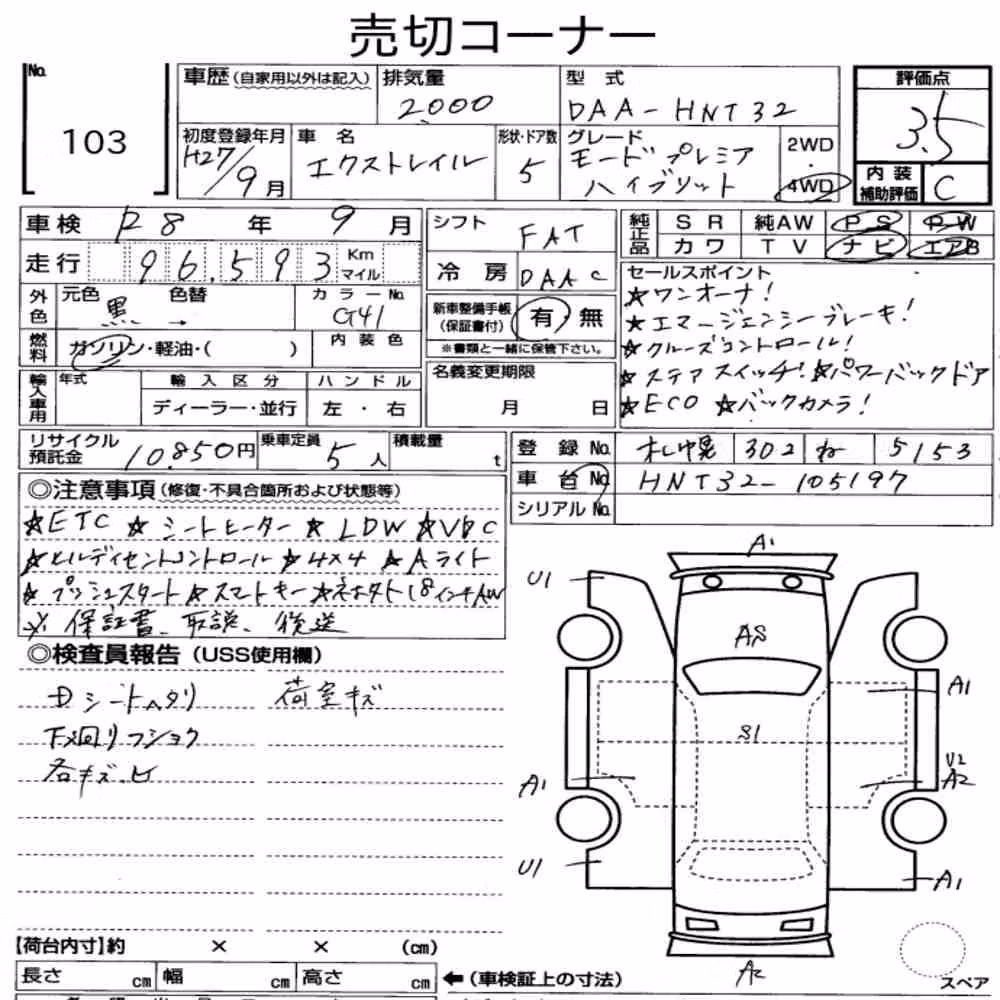 売切コーナー
No. 103
車歴(自家用以外は記入) 排気量 2,000 型式 DAA-HNT32
初度登録年月 H27/9月 車名 エクストレイル 形状・ドア数 5 グレード モードプレミア ハイブリット 2WD・4WD
評価点 3.5
内装補助評価 C
車検 R8年 9月
走行 96,593 Km マイル
外色 元色 黒 色替 → カラーNo. G41
燃料 ガソリン・軽油・( ) 内装色
輸入車用 年式 輸入区分 ハンドル
ディーラー・並行 左・右
シフト FAT
冷房 DAAC
新車整備手帳(保証書付) 有 無
※書類と一緒に保管下さい。
名義変更期限
月 日
純正品 SR 純AW PS PW
カワ TV ナビ エアB
セールスポイント
☆ワンオーナ!
☆エマージェンシーブレーキ!
☆クルーズコントロール!
☆ステアスイッチ! ☆パワーバックドア
☆ECO ☆バックカメラ!
リサイクル預託金 10,850円 乗車定員 5人 積載量 t
登録No. 札幌 302 ね 5153
車台No. HNT32-105197
シリアルNo.
◎注意事項(修復・不具合箇所および状態等)
☆ETC ☆シートヒーター ☆LDW ☆VDC
☆ヒルディセントコントロール ☆4×4 ☆Aライト
☆プッシュスタート ☆スマートキー ☆ 18インチAW
※保証書、取説、後送
◎検査員報告(USS使用欄)
Dシートヘタリ 荷室キズ
下廻りフショク
各キズ、ヒ
A1
U1
AS
A1
S1
U2
A2
A1
U1
A1
A2
スペア
【荷台内寸】約 × × (cm)
長さ cm 幅 cm 高さ cm ←(車検証上の寸法)